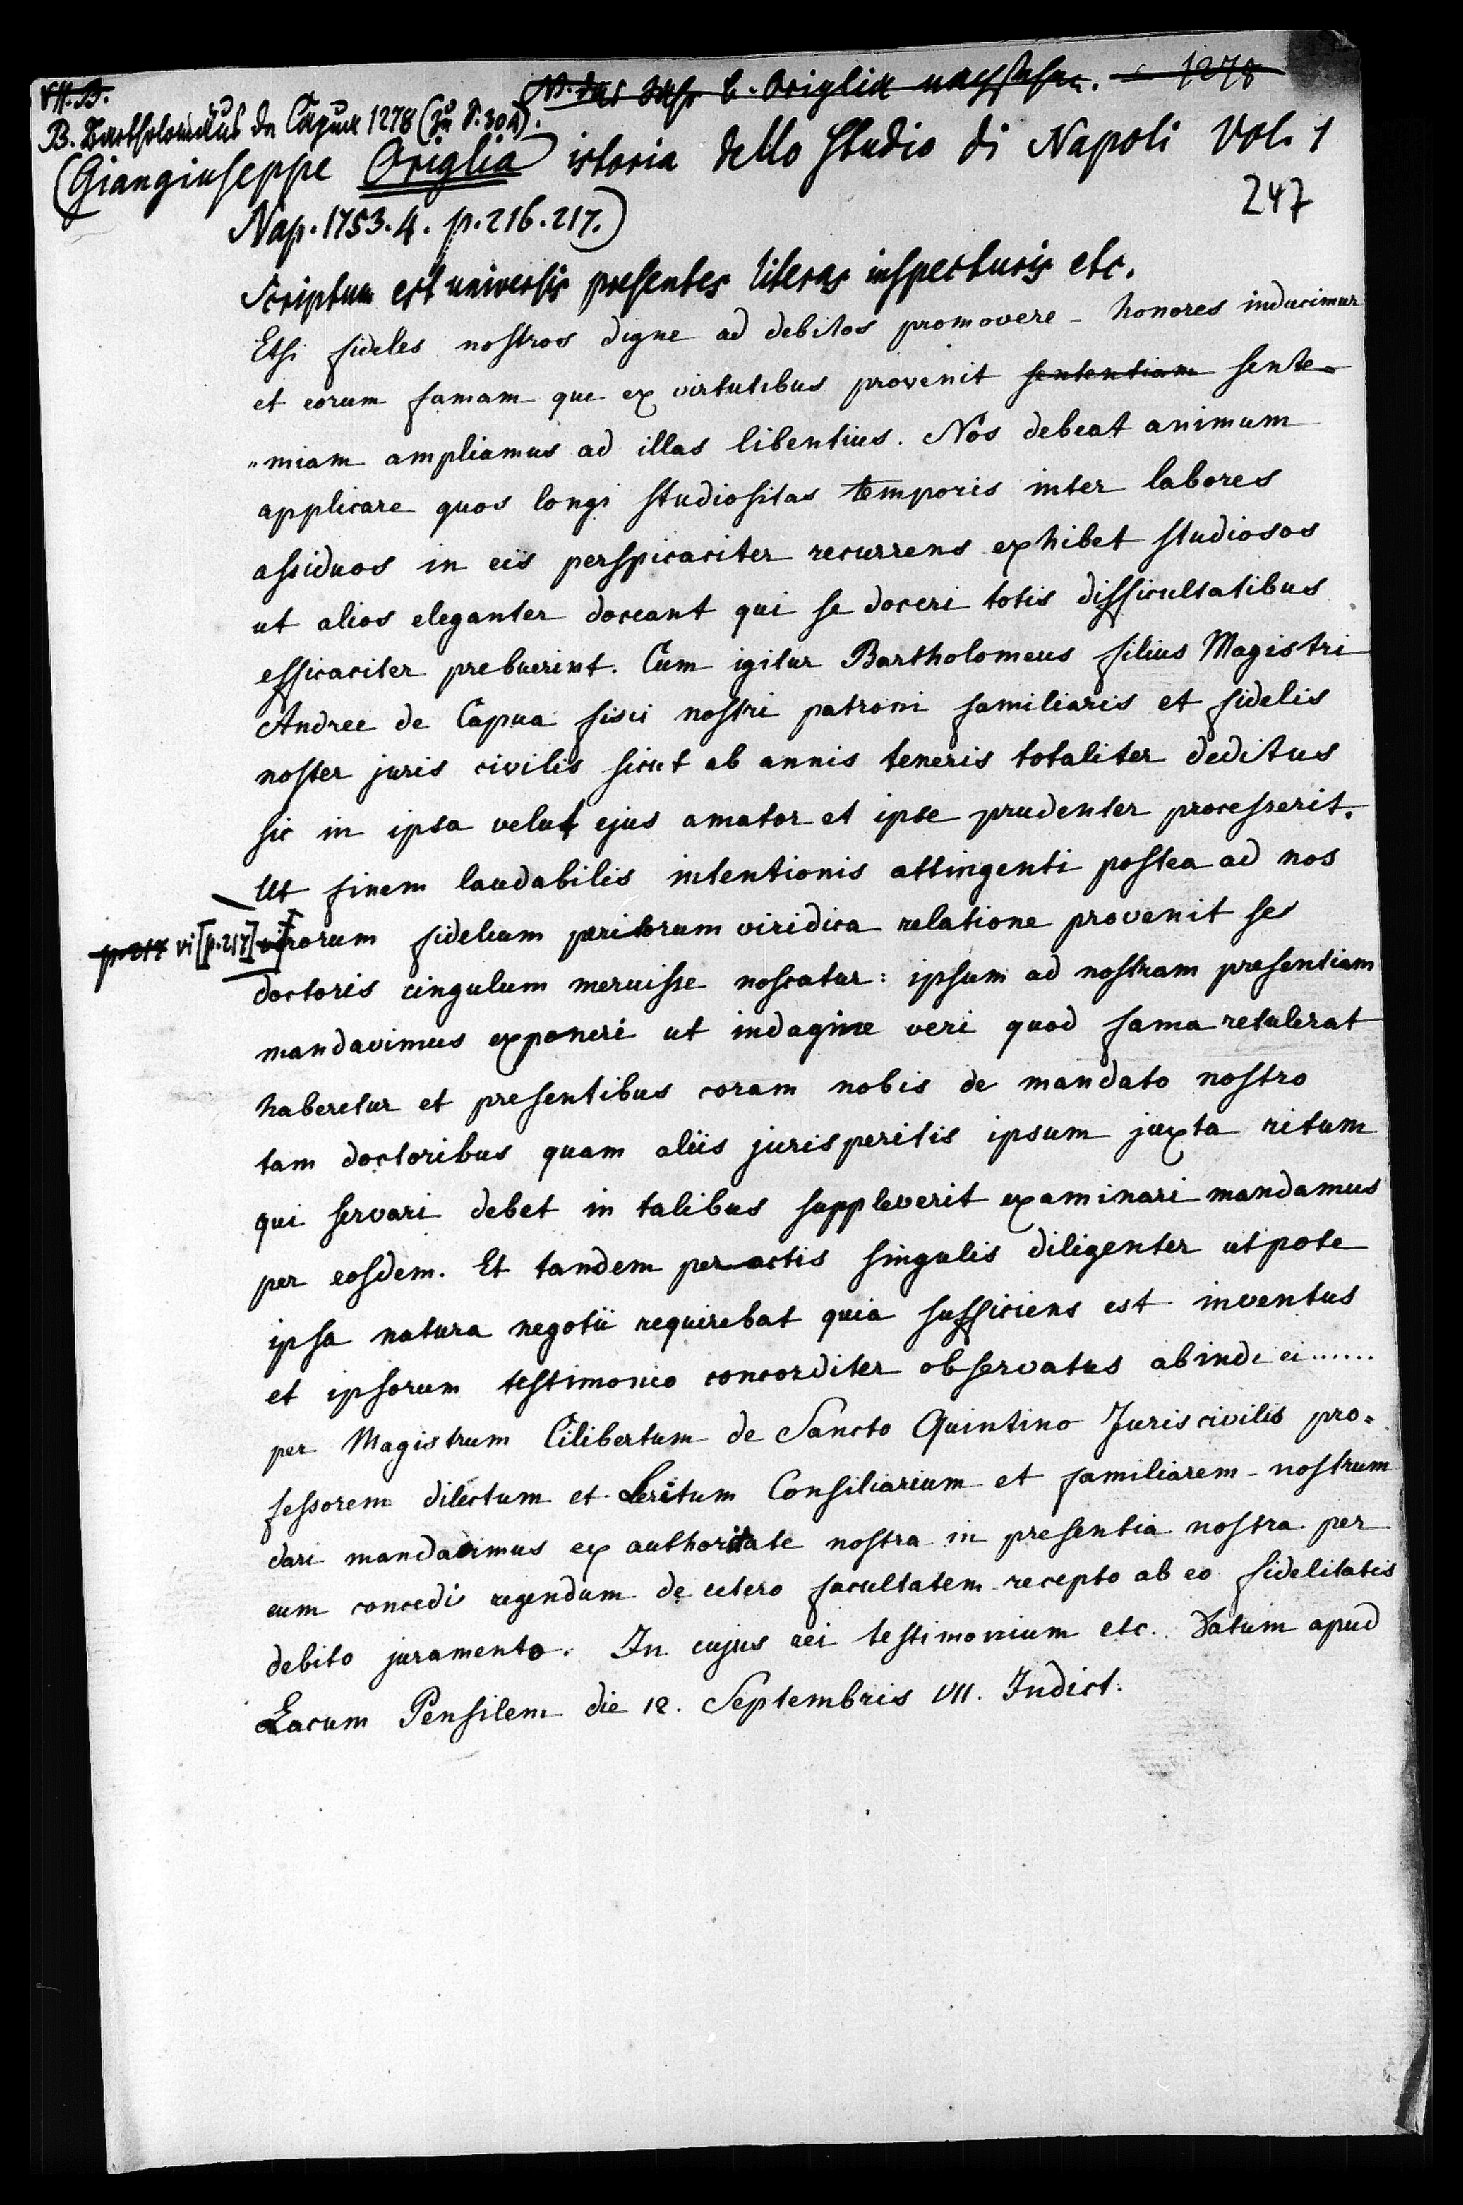 VII. B.
1278
B. Bartholomäus de Capua 1278 (zu S. 304).
(Giangiuseppe Origlia istoria dello Studio di Napoli Vol. 1
247
Nap. 1753. 4. p. 216. 217.)
Scriptum est universis presentes literas inspecturis etc.
Etsi fideles nostros digne ad debitos promovere - honores inducimur
et eorum famam que ex virtutibus provenit sententiam sente-
"miam ampliamus ad illas libentius. Nos debeat animum
applicare quos longi studiositas temporis inter labores
assiduos in eis perspicaciter recurrens exhibet studiosos
ut alios eleganter doceant qui se doceri totis difficultatibus
efficaciter prebuerint. Cum igitur Bartholomeus filius Magistri
Andree de Capua fisci nostri patroni familiaris et fidelis
noster juris civilis sicut ab annis teneris totaliter deditus
sic in ipsa velut ejus amator et ipse prudenter processerit.
Ut finem laudabilis intentionis attingenti postea ad nos
p. 217 vi [p. 217] rorum fidelium peritorum viridica relatione provenit se
doctoris cingulum meruisse noscatur: ipsum ad nostram presentiam
mandavimus exponeri ut indagine veri quod fama retulerat
haberetur et presentibus coram nobis de mandato nostro
tam doctoribus quam aliis jurisperitis ipsum juxta ritum
qui servari debet in talibus suppleverit examinari mandamus
per eosdem. Et tandem peractis singulis diligenter utpote
ipsa natura negotii requirebat quia sufficiens est inventus
et ipsorum testimonio concorditer observatus abinde ei......
per Magistrum Cilibertum de Sancto Quintino Juris civilis pro-
fessorem dilectum et Leritum Consiliarium et familiarem - nostrum
dari mandavimus ex authoritate nostra in presentia nostra per
eum concedi regendum de cetero facultatem recepto ab eo fidelitatis
debito juramento. In cujus rei testimonium etc. Datum apud
Lacum Pensilem die 12. Septembris VII. Indict.